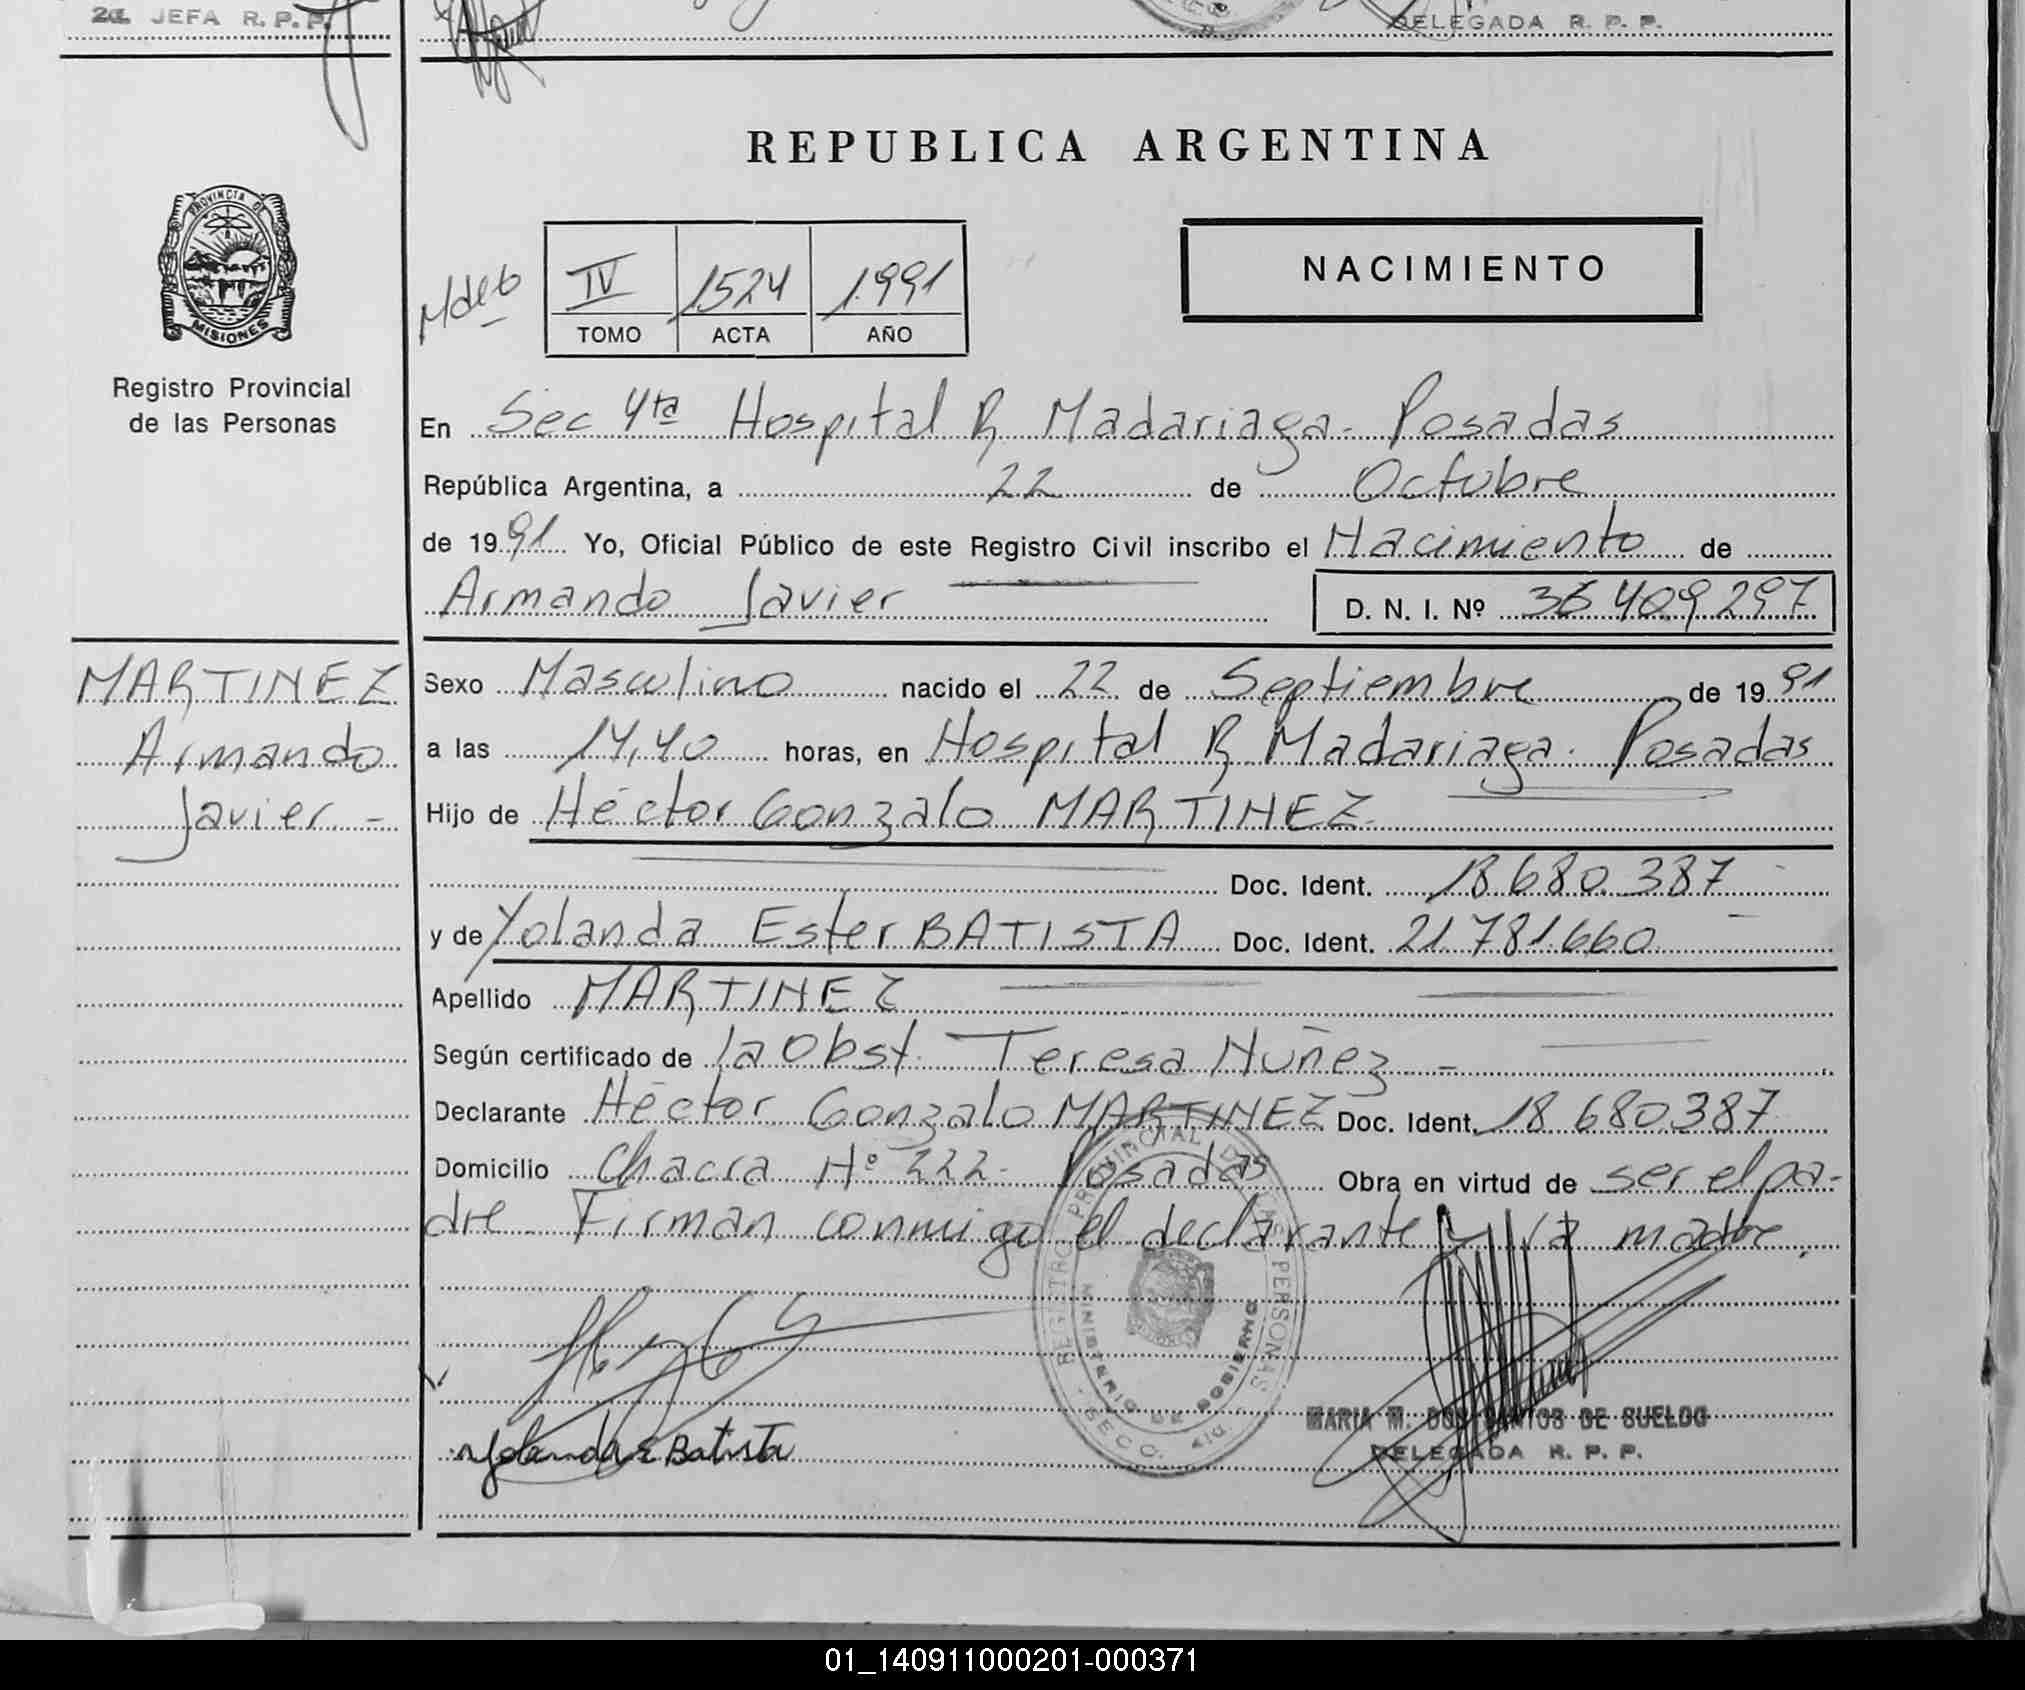 2a. JEFA R. P. P.
DELEGADA R. P. P.
REPUBLICA ARGENTINA
PROVINCIA DE
MISIONES
Registro Provincial
de las Personas
IV 1524 1991
TOMO ACTA AÑO
NACIMIENTO
En Sec 4ta Hospital R Madariaga - Posadas
República Argentina, a 22 de Octubre
de 1991 Yo, Oficial Público de este Registro Civil inscribo el Nacimiento de
Armando Javier D. N. I. Nº 36 409 297
MARTINEZ
Armando
Javier -
Sexo Masculino nacido el 22 de Septiembre de 1991
a las 14,40 horas, en Hospital R Madariaga. Posadas
Hijo de Héctor Gonzalo MARTINEZ
Doc. Ident. 18 680.387
y de Yolanda Ester BATISTA Doc. Ident. 21.781.660
Apellido MARTINEZ
Según certificado de la Obst. Teresa Nuñez -
Declarante Héctor Gonzalo MARTINEZ Doc. Ident. 18 680.387
Domicilio Chacra Nº 222 - Posadas Obra en virtud de ser el pa-
dre. Firman conmigo el declarante y la madre.
REGISTRO PROVINCIAL DE LAS PERSONAS
MINISTERIO DE GOBIERNO
SECC. 4ta
Yolanda E Batista
MARIA M. DOS SANTOS DE SUELDO
DELEGADA R. P. P.
01_140911000201-000371